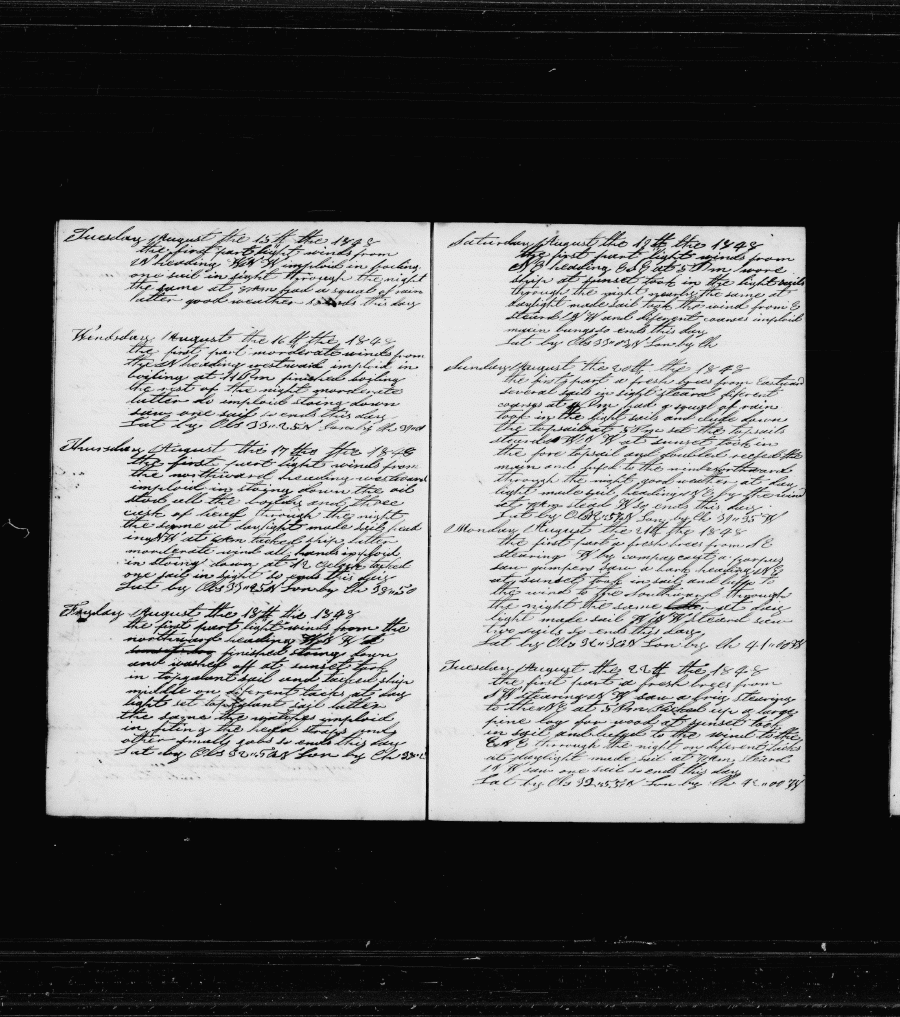 Tuesday August the 15th the 1848
the first part light winds from
N heading W N W imploid in
one sail in sight through the night
the same at 7 am had a squal of rain
latter good weather so ends this day
Wendsday August the 16th the 1848
the first part morderate winds from
the N heading westward imploid in
boyling at 11 Pm finished boyling
the rest of the night morderate
latter do imploid stoing down
saw one sail so ends this day
Lat by Obs 33 Lon by Ch
Thursday August the 17 the the 1848
the first part light winds from
the northward heading westward
imploid in stoing down the oil
stod all the and three
cask of beef through the night
the same at daylight made sail head
ing NW at 6 am tacked ship latter
morderate wind all hands imploid
in stoing down at 12 oclock tacked
one sail in sight so ends this day
Lat by Obs 33"25 N Lon by Ch 38"50
Fryday August the 18th the 1848
the first part light winds from the
northward heading W N W
finished stoing down
and washed off at sunset took
in topgalant sail and tacked ship
middle on diferent tacks at day
light set topgalant sail latter
the same the watches imploid
in fiting the head straps and
other small jobs so ends this day
Lat by Obs 32"50 N Lon by Ch
Saturday August the 19th the 1848
the first part light winds from
N E heading at 5 Pm wore
ship at sunset took in the light sails
through the night nearly the same at
daylight made sail took the wind from E
steard N W and diferent courses imploid
main so ends this day
Lat by Obs 33"03 N Lon by Ch
Sunday August the 20th the 1848
the first part a fresh bres from Eastward
several sails in sight steard diferent
courses at Pm had a squal of rain
took in the light sails and clude down
the topsails at 5 Pm set the topsails
steard W N W at sunset took in
the fore topsail and doubled reefed the
main and to the wind northward
through the night good weather at day
light made sail heading N by the wind
at 7 am steard W so ends this day
Lat by Obs Lon by Ch 39"35 W
Monday August the 21th the 1848
the first part a fresh bres from S E
stearing W by compass a porpus
saw jumpers saw a bark heading N E
at sunset took in sail and luffe to
the wind to the southward through
the night the same at day
light made sail W N W steard saw
two sails so ends this day
Lat by Obs Lon by Ch 41"00 W
Tuesday August the 22th the 1848
the first part a fresh bres from
N W stearing W saw a brig stearing
to the N E at 5 Pm picked up a large
pine log for wood at sunset took
in sail and luffed to the wind to the
E N E through the night on diferent tacks
at daylight made sail at 7 am steard
W saw one sail so end this day
Lat by Obs 32"53 N Lon by Ch 42"00 W